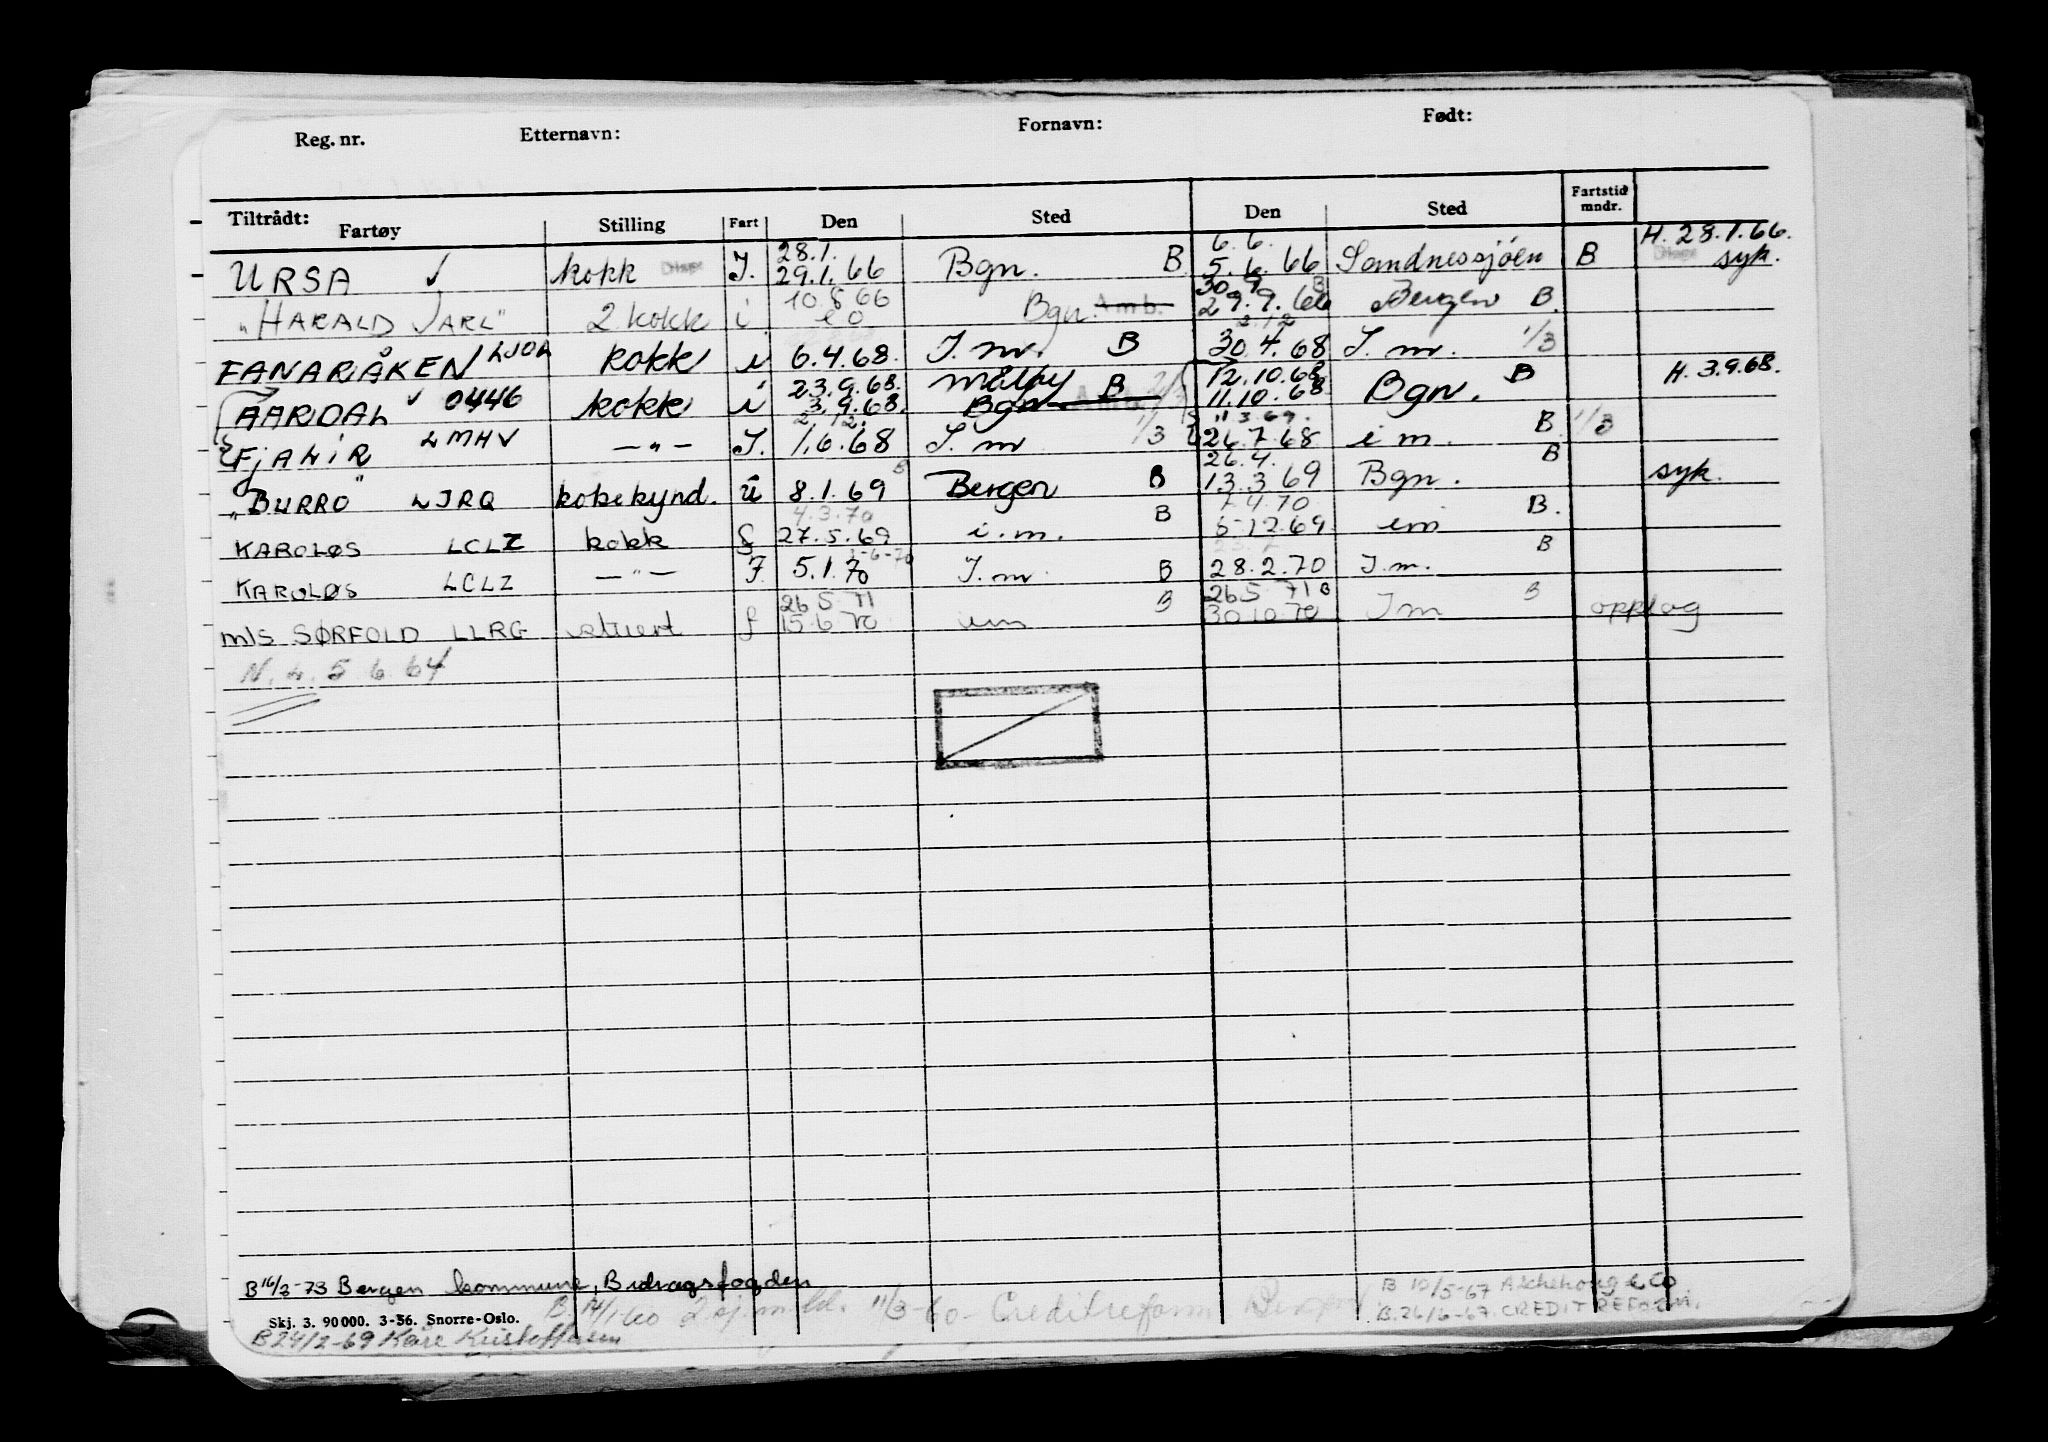 Reg. nr. Etternavn: Fornavn: Født:
Tiltrådt: Fartøy Stilling Fart Den Sted Den Sted Fartstid mndr.
28.1. 6.6. H. 28.1.66.
URSA ✓ kokk J. 29.1.66 Bgn. B 5.6.66 Sandnessjöen B syk.
10.8 66 30.9 B
"HARALD JARL" 2 kokk i Bgn. Amb. 29.9.66 Bergen B.
FANARÅKEN LJOL kokk i 6.4.68. I. m. B 30.4.68 I. m. 1/3
23.9.68. Måløy 12.10.68 H. 3.9.68.
AARDAL ✓ 0446 kokk i 3.9.68. Bgn B 11.10.68 Bgn. B
2.12. 11.3.69.
FJALIR LMHV —"— J. 1.6.68 I. m 1/3 26.7.68 i m. B 1/3
26.4. B
"BURRO" LJRQ kokekynd. u 8.1.69 B Bergen B 13.3.69 Bgn. syk.
4.3.70 7.4.70
KAROLØS LCLZ kokk f 27.5.69 i. m. B 5.12.69 im B.
1-6-70
KAROLØS LCLZ —"— F 5.1.70 I. m. B 28.2.70 I. m. B
26 5 71 26 5 71 B
m/s SØRFOLD LLRG stuert f 15.6.70 im B 30.10.70 I m B opplag
N. L. 5.6.64
B 16/3-73 Bergen kommune, Bidragsfogden
B 10/5-67 Aschehoug & Co
Skj. 3. 90 000. 3-56. Snorre-Oslo. B. 14/1-60 2 sj.m.bl. 11/3-60- Creditreform Bergen B. 26/6-67. CREDITREFORM.
B 24/2-69 Kåre Kristoffersen